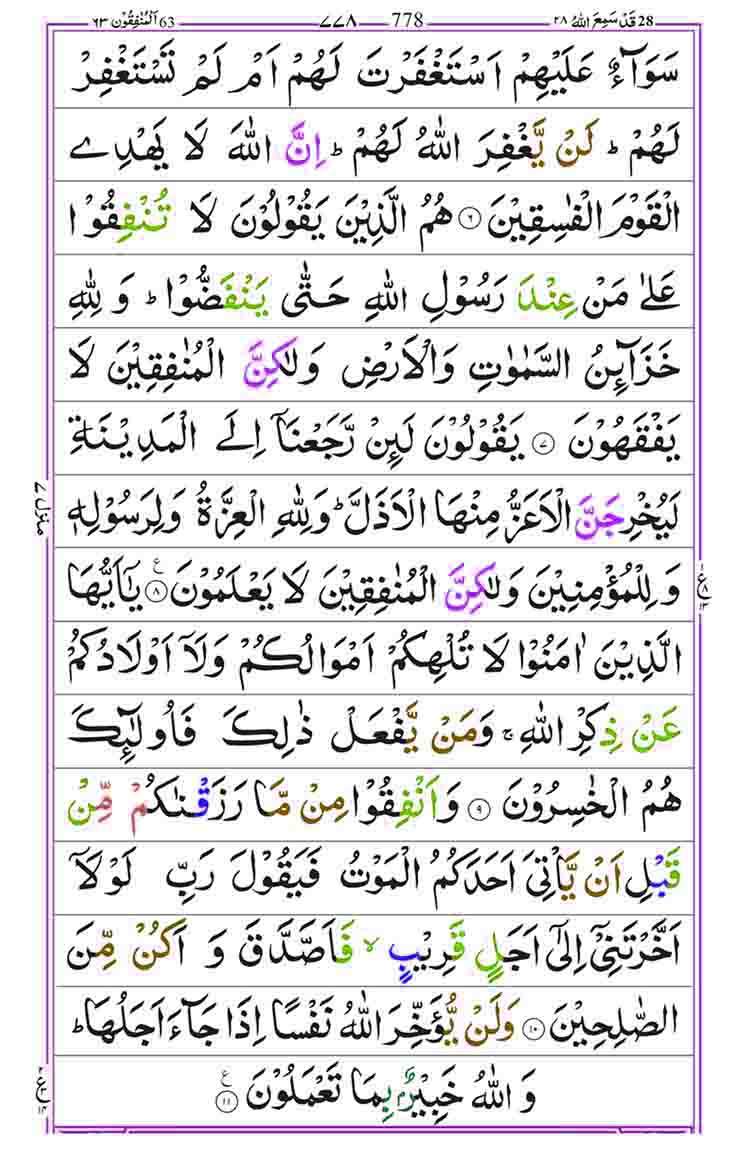 28 قَدْ سَمِعَ اللهُ ٢٨ 778 ٧٧٨ 63 اَلْمُنٰفِقُوْن ٦٣
سَوَآءٌ عَلَيْهِمْ اَسْتَغْفَرْتَ لَهُمْ اَمْ لَمْ تَسْتَغْفِرْ
لَهُمْ ؕ لَنْ يَّغْفِرَ اللّٰهُ لَهُمْ ؕ اِنَّ اللّٰهَ لَا يَهْدِے
الْقَوْمَ الْفٰسِقِيْنَ ۝۶ هُمُ الَّذِيْنَ يَقُوْلُوْنَ لَا تُنْفِقُوْا
عَلٰى مَنْ عِنْدَ رَسُوْلِ اللّٰهِ حَتّٰى يَنْفَضُّوْا ؕ وَ لِلّٰهِ
خَزَآئِنُ السَّمٰوٰتِ وَالْاَرْضِ وَلٰكِنَّ الْمُنٰفِقِيْنَ لَا
يَفْقَهُوْنَ ۝۷ يَقُوْلُوْنَ لَئِنْ رَّجَعْنَاۤ اِلَى الْمَدِيْنَةِ
لَيُخْرِجَنَّ الْاَعَزُّ مِنْهَا الْاَذَلَّ ؕ وَلِلّٰهِ الْعِزَّةُ وَلِرَسُوْلِهٖ
وَ لِلْمُؤْمِنِيْنَ وَلٰكِنَّ الْمُنٰفِقِيْنَ لَا يَعْلَمُوْنَ ۝۸ ع يٰۤاَيُّهَا
الَّذِيْنَ اٰمَنُوْا لَا تُلْهِكُمْ اَمْوَالُكُمْ وَلَاۤ اَوْلَادُكُمْ
عَنْ ذِكْرِ اللّٰهِ ۚ وَمَنْ يَّفْعَلْ ذٰلِكَ فَاُولٰٓئِكَ
هُمُ الْخٰسِرُوْنَ ۝۹ وَاَنْفِقُوْا مِنْ مَّا رَزَقْنٰكُمْ مِّنْ
قَبْلِ اَنْ يَّاْتِىَ اَحَدَكُمُ الْمَوْتُ فَيَقُوْلَ رَبِّ لَوْلَاۤ
اَخَّرْتَنِىْۤ اِلٰٓى اَجَلٍ قَرِيْبٍ ۙ فَاَصَّدَّقَ وَ اَكُنْ مِّنَ
الصّٰلِحِيْنَ ۝۱۰ وَلَنْ يُّؤَخِّرَ اللّٰهُ نَفْسًا اِذَا جَآءَ اَجَلُهَا ؕ
وَ اللّٰهُ خَبِيْرٌۢ بِمَا تَعْمَلُوْنَ ۝۱۱ ع
منزل ۷